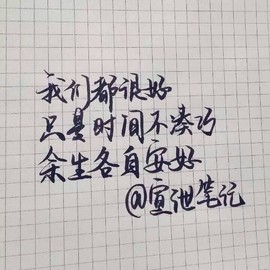 我们都很好
只是时间不凑巧
余生各自安好
@宣泄笔记